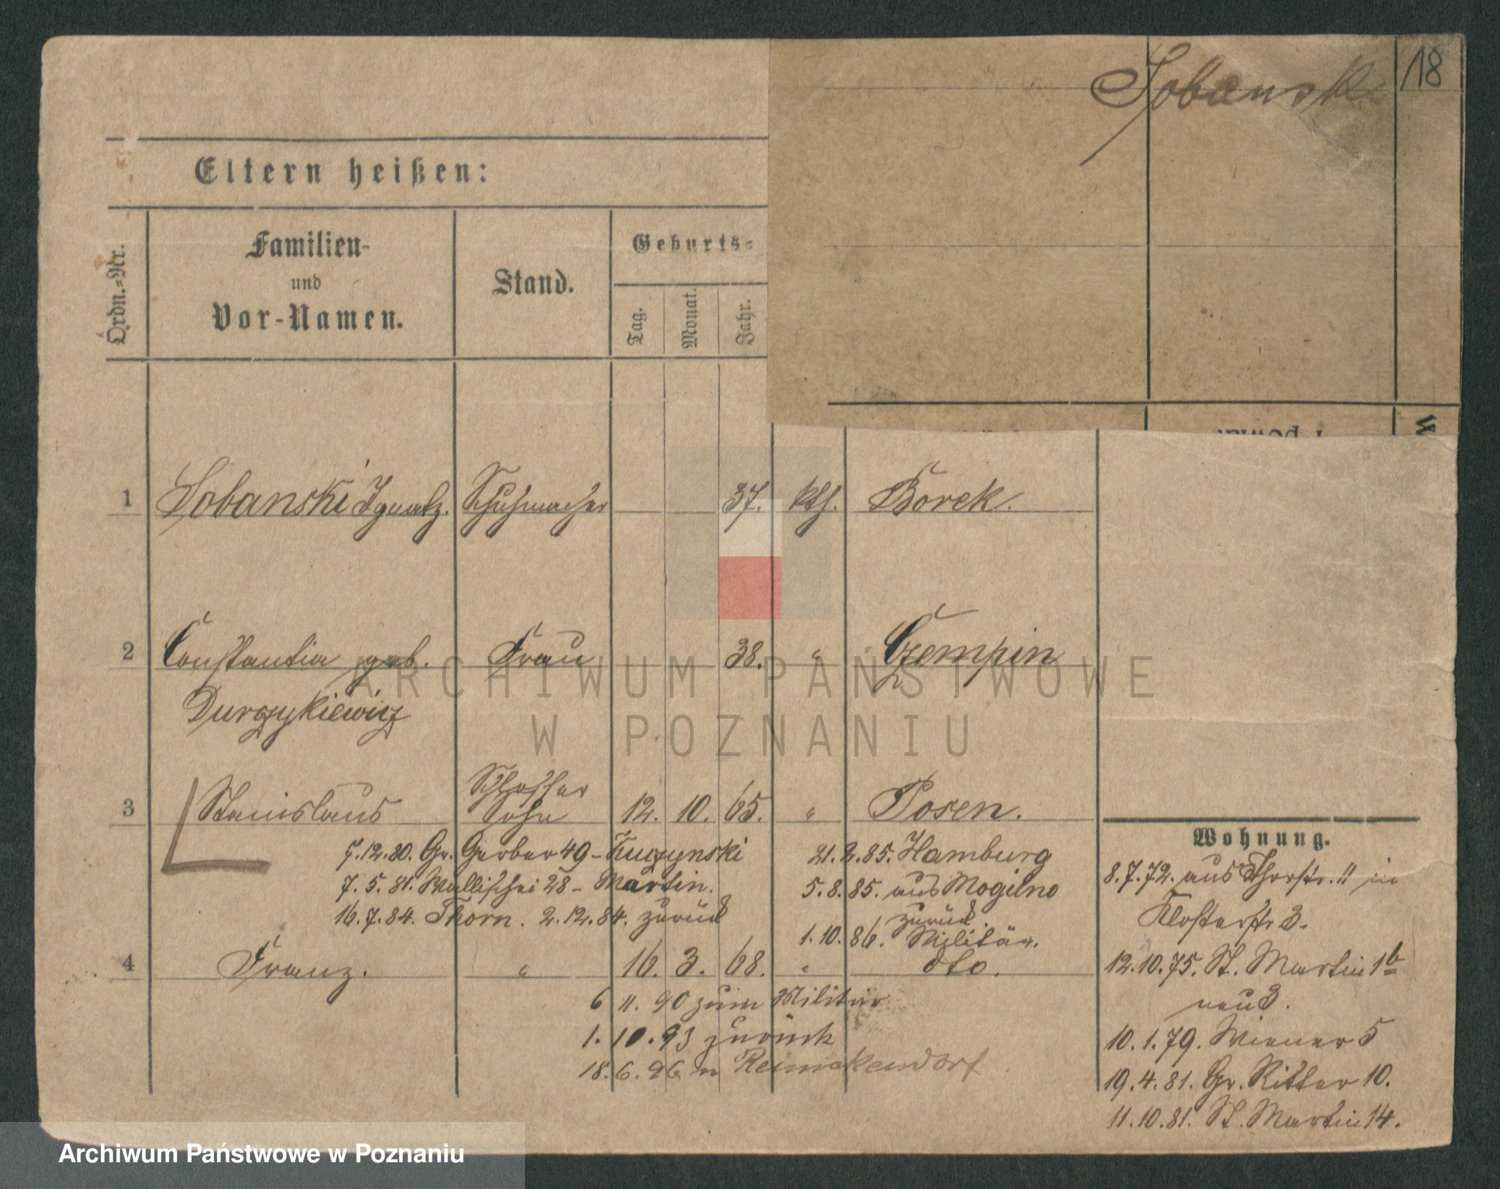 Sobanski
18
Eltern heißen:
Ordn.-Nr.
Familien-
und
Vor-Namen.
Stand.
Geburts-
Tag.
Monat.
Jahr.
1 Sobanski Ignatz. Schuhmacher 37. kth. Borek.
2 Constantia geb. Frau 38. " Czempin
Durczykiewicz
Schlosser
3 Stanislaus Sohn 12. 10. 65. " Posen.
7.12.80. Gr. Gerber 49 - Kuczynski
7. 5. 81. Wallischei 28 - Martin.
16.7.84. Thorn. 2.12.84. zurück
21.2.85. Hamburg
5.8.85. aus Mogilno
zurück
1.10.86. Militär.
4 Franz. " 16. 3. 68. " dto.
6 11. 90 zum Militär
1. 10. 93 zurück
18. 6. 96 n Reinickendorf
Wohnung.
8.7.72. aus Thorstr. 11 in
Klosterstr 3.
12.10.75. St. Martin 1b
neu 3.
10.1.79. Wiener 5
19.4.81. Gr. Ritter 10.
11.10.81. St. Martin 14.
ARCHIWUM PAŃSTWOWE
W POZNANIU
Archiwum Państwowe w Poznaniu